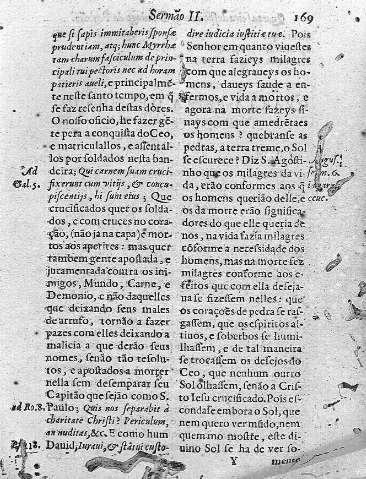 Sermão II. 169
que si sapis immitaberis sponsæ
prudentiam, atq; hunc Myrrhæ
tam charum fasciculum de prin-
cipali tui pectoris nec ad horam
patieris aueli, e principalmē-
te neste santo tempo, em q̃
se faz resenha destas dòres.
O nosso officio, he fazer gē-
te pera a conquista do Ceo,
e matriculallos, e assental-
los por soldados nesta ban-
deira; Qui carnem suam cruci-
fixerunt cum vitijs, & concu-
piscentijs, hi sunt eius; Que
crucificados quer os solda-
dos, e com cruces no cora-
ção, (não ja na capa) ē mor-
tos aos apetites: mas quer
tambem gente apostada, e
juramentada contra os ini-
migos, Mundo, Carne, e
Demonio, e não daquelles
que deixando seus males
de arrufo, tornão a fazer
pazes com elles deixando a
malicia a que derão seus
nomes, senão tão resolu-
tos, e apostados a morrer
nella sem desemparar seu
Capitão que sejão como S.
Paulo; Quis nos separabit à
charitate Christi? Periculum,
an nuditas, &c. E como hum
Dauid, Iuraui, & statui custo-
Ad
Gal. 5.
ad Ro. 8.
Ps. 118.
dire iudicia iustitiæ tuæ. Pois
Senhor em quanto viuestes
na terra fazieys milagres
com que alegraueys os ho-
mens, daueys saude a en-
fermos, e vida a mortos, e
agora na morte fazeys si-
nays com que amedrētaes
os homens? quebranse as
pedras, a terra treme, o Sol
se escurece? Diz S. Agosti-
nho que os milagres da vi-
da, erão conformes aos q̃
os homens querião delle, e
os da morte erão significa-
dores do que elle queria de
nos, na vida fazia milagres
cõforme a necessidade dos
homens, mas na morte fez
milagres conforme aos e-
feitos que com ella deseja-
ua se fizessem nelles: que
os coraçoēs de pedra se ras-
gassem, que os espiritos al-
tiuos, e soberbos se humi-
lhassem, e de tal maneira
se trocassem os desejos do
Ceo, que nenhum outro
Sol olhassem, senão a Cris-
to Iesu crucificado. Pois es-
condase embora o Sol, que
nem quero ver mũdo, nem
quem mo mostre, este di-
uino Sol se ha de ver so-
Y mente